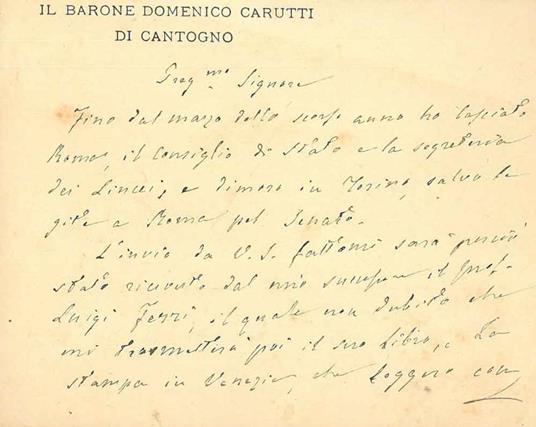 IL BARONE DOMENICO CARUTTI
DI CANTOGNO
Preg.mo Signore
Fino dal marzo dello scorso anno ho lasciato
Roma, il Consiglio di Stato e la segreteria
dei Lincei, e dimoro in Torino, salvo le
gite a Roma pel Senato.
L'invio da V. S. fattomi sarà perciò
stato ricevuto dal mio successore il prof.
Luigi Ferri, il quale non dubito che
mi trasmetterà poi il suo libro, e la
stampa in Venezia, che leggerò con